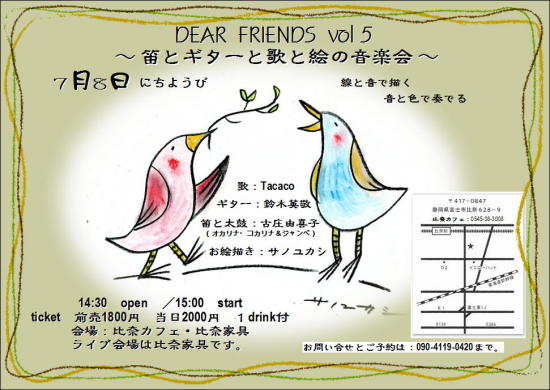 DEAR FRIENDS vol 5
～ 笛とギターと歌と絵の音楽会 ～
7月8日 にちようび
線と音で描く
音と色で奏でる
歌：Tacaco
ギター：鈴木英敬
笛と太鼓：古庄由喜子
(オカリナ・コカリナ&ジャンベ)
お絵描き：サノユカシ
サノユカシ
14:30 open ／15:00 start
ticket 前売1800円 当日2000円 1 drink付
会場：比奈カフェ・比奈家具
ライブ会場は比奈家具です。
〒417-0847
静岡県富士市比奈628-9
比奈カフェ：0545-38-3008
比奈駅
D2
イエローハット
東海道新幹線
K1
富士東I.C
R139
お問い合せとご予約は：090-4119-0420まで。